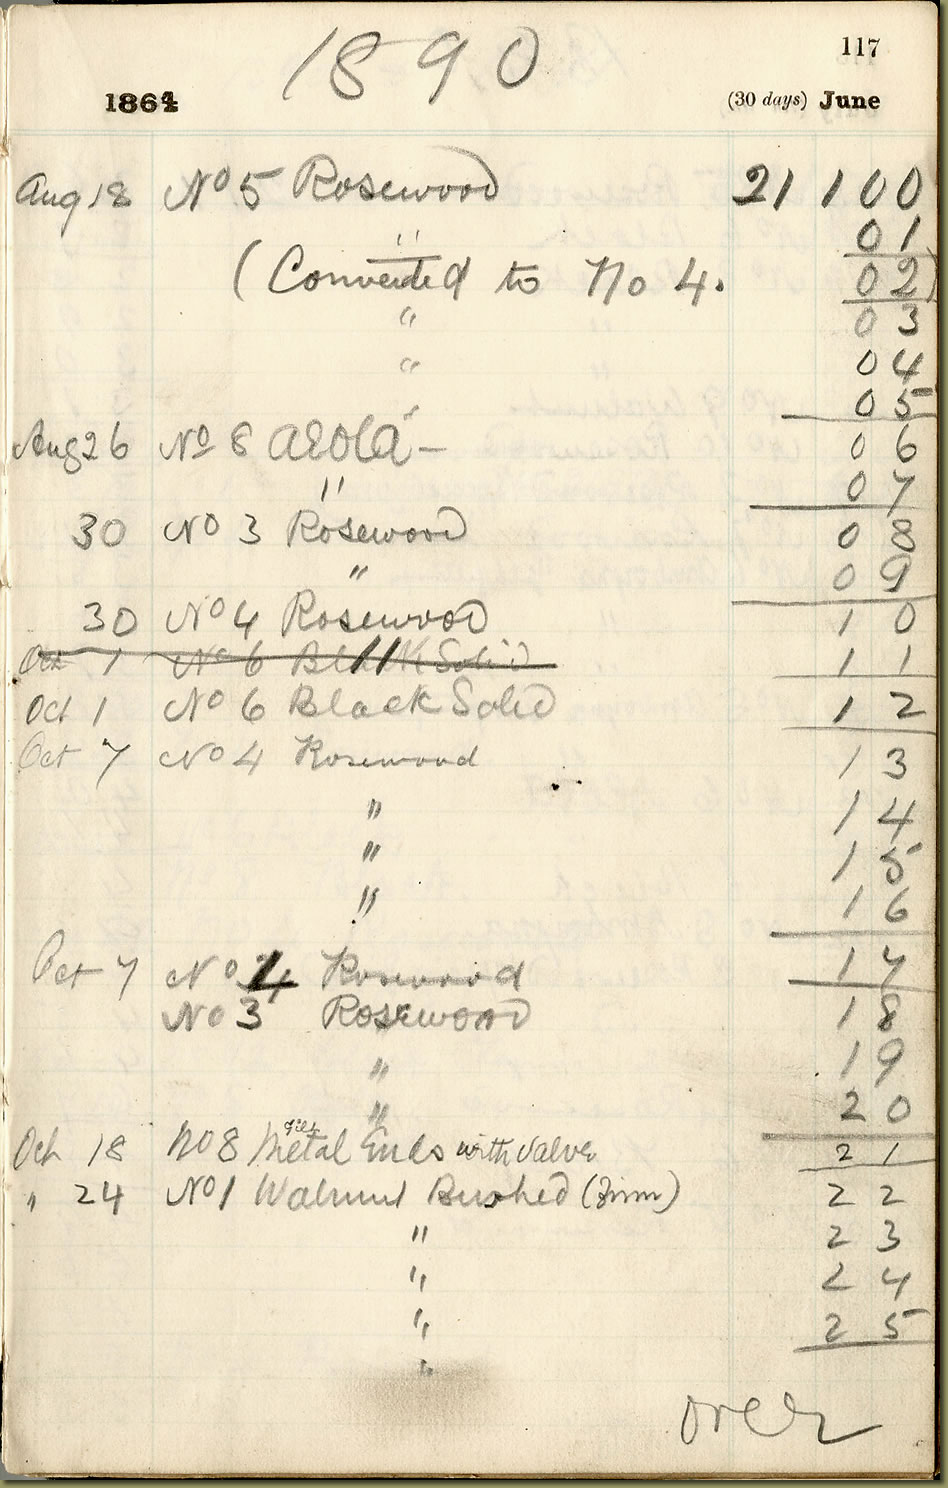 117
1890
1864 (30 days) June
Aug 18 No 5 Rosewood 21100
" 01
(Converted to No 4. 02)
" 03
" 04
" 05
Aug 26 No 8 Aeola – 06
" 07
30 No 3 Rosewood 08
" 09
30 No 4 Rosewood 10
Oct 1 No 6 Black Solid 11
Oct 1 No 6 Black Solid 12
Oct 7 No 4 Rosewood 13
" 14
" 15
" 16
Oct 7 No 4 Rosewood 17
No 3 Rosewood 18
" 19
" 20
Oct 18 No 8 Gilt Metal Ends with valve 21
" 24 No 1 Walnut Bushed ( ) 22
" 23
" 24
" 25
"
over